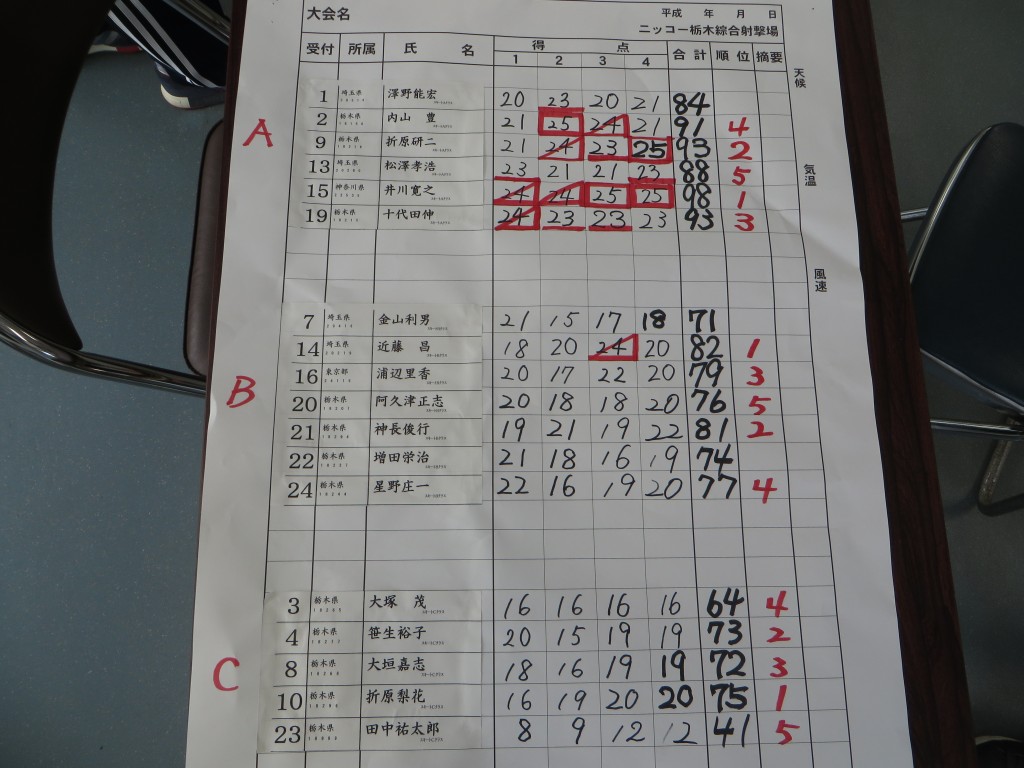 大会名 平成 年 月 日
ニッコー栃木綜合射撃場
受付 所属 氏 名 得 点 合計 順位 摘要
1 2 3 4
天候
気温
風速
A
1 埼玉県 澤野能宏 20 23 20 21 84
2 栃木県 内山 豊 21 25 24 21 91 4
9 栃木県 折原研二 21 24 23 25 93 2
13 埼玉県 松澤孝浩 23 21 21 23 88 5
15 神奈川県 井川寛之 24 24 25 25 98 1
19 栃木県 十代田伸 24 23 23 23 93 3
B
7 埼玉県 金山利男 21 15 17 18 71
14 埼玉県 近藤 昌 18 20 24 20 82 1
16 東京都 浦辺里香 20 17 22 20 79 3
20 栃木県 阿久津正志 20 18 18 20 76 5
21 栃木県 神長俊行 19 21 19 22 81 2
22 栃木県 増田栄治 21 18 16 19 74
24 栃木県 星野庄一 22 16 19 20 77 4
C
3 栃木県 大塚 茂 16 16 16 16 64 4
4 栃木県 笹生裕子 20 15 19 19 73 2
8 栃木県 大垣嘉志 18 16 19 19 72 3
10 栃木県 折原梨花 16 19 20 20 75 1
23 栃木県 田中祐太郎 8 9 12 12 41 5